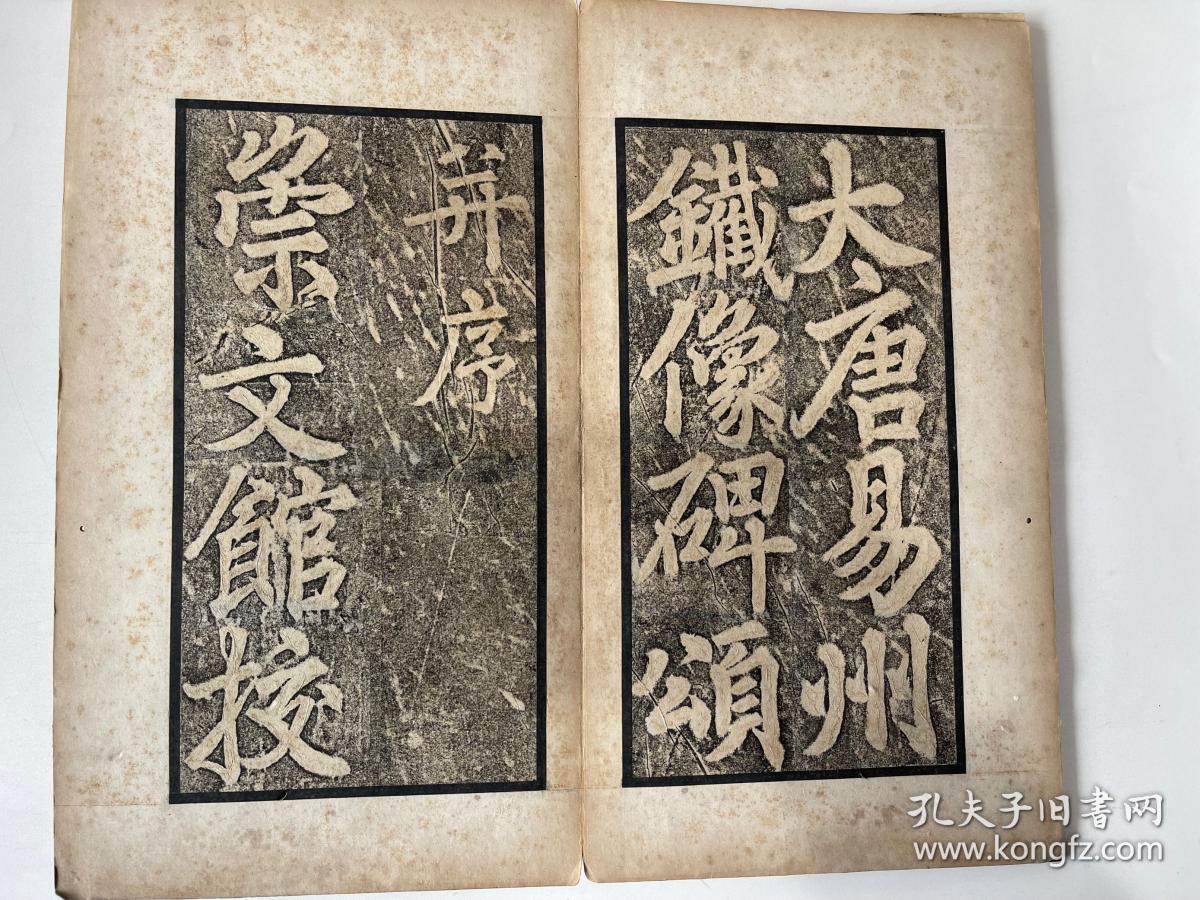 大唐易州
鐵像碑頌
并序
崇文館挍
孔夫子旧书网
www.kongfz.com